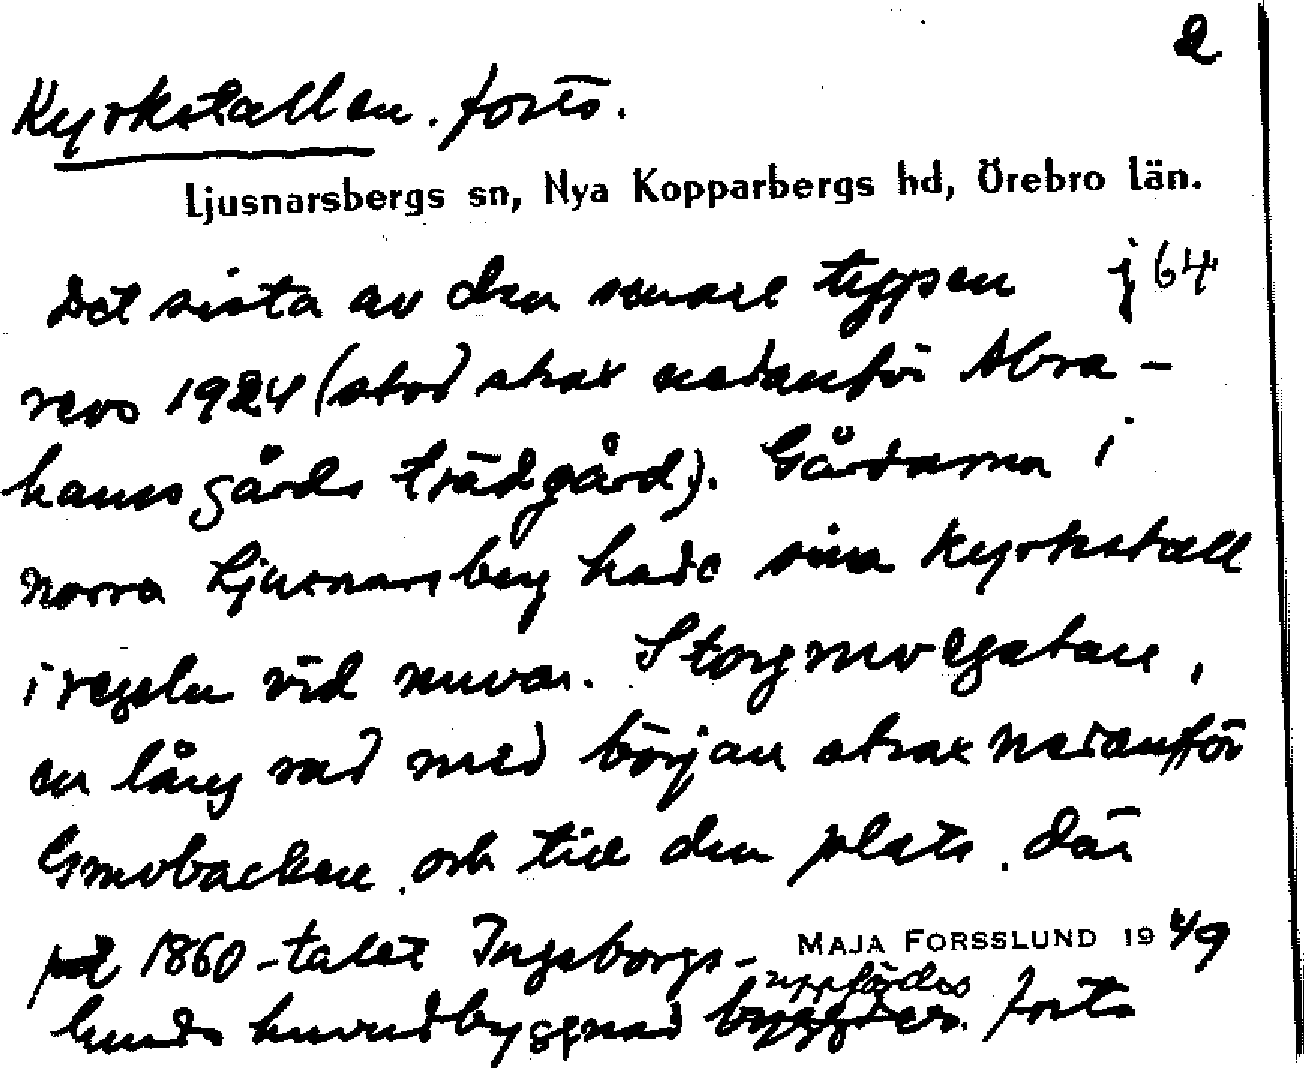 2
Kyrkstallen. forts.
Ljusnarsbergs sn, Nya Kopparbergs hd, Örebro län.
Det sista av den senare typen j 64
revs 1924 (stod strax nedanför Abra-
hamsgårds trädgård). Gårdarna i
norra Ljusnarsberg hade sina kyrkstall
i regeln vid nuvar. Storgruvegatan,
en lång rad med början strax nedanför
Gruvbacken och till den plats, där
på 1860-talet Ingeborgs-
MAJA FORSSLUND 1949
lunds huvudbyggnad uppfördes forts